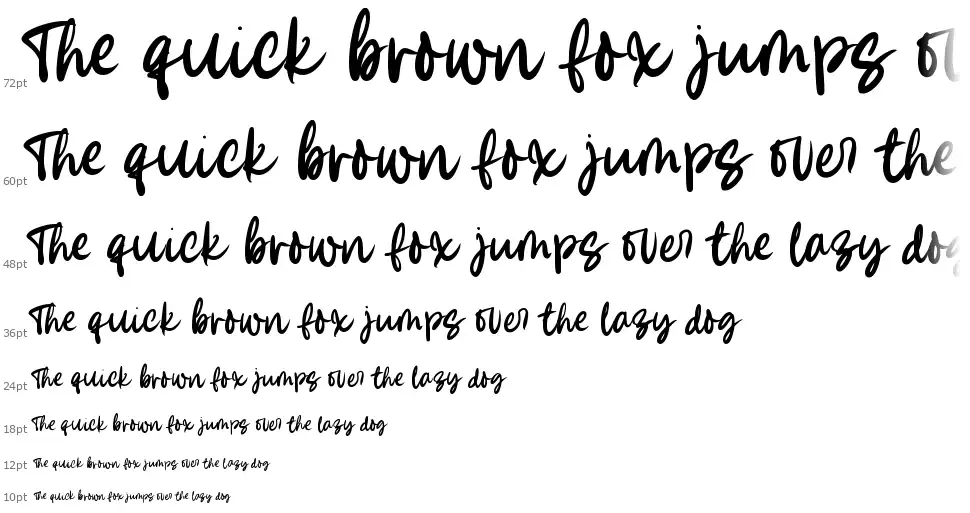 72pt The quick brown fox jumps ov
60pt The quick brown fox jumps over the
48pt The quick brown fox jumps over the lazy dog
36pt The quick brown fox jumps over the lazy dog
24pt The quick brown fox jumps over the lazy dog
18pt The quick brown fox jumps over the lazy dog
12pt The quick brown fox jumps over the lazy dog
10pt The quick brown fox jumps over the lazy dog